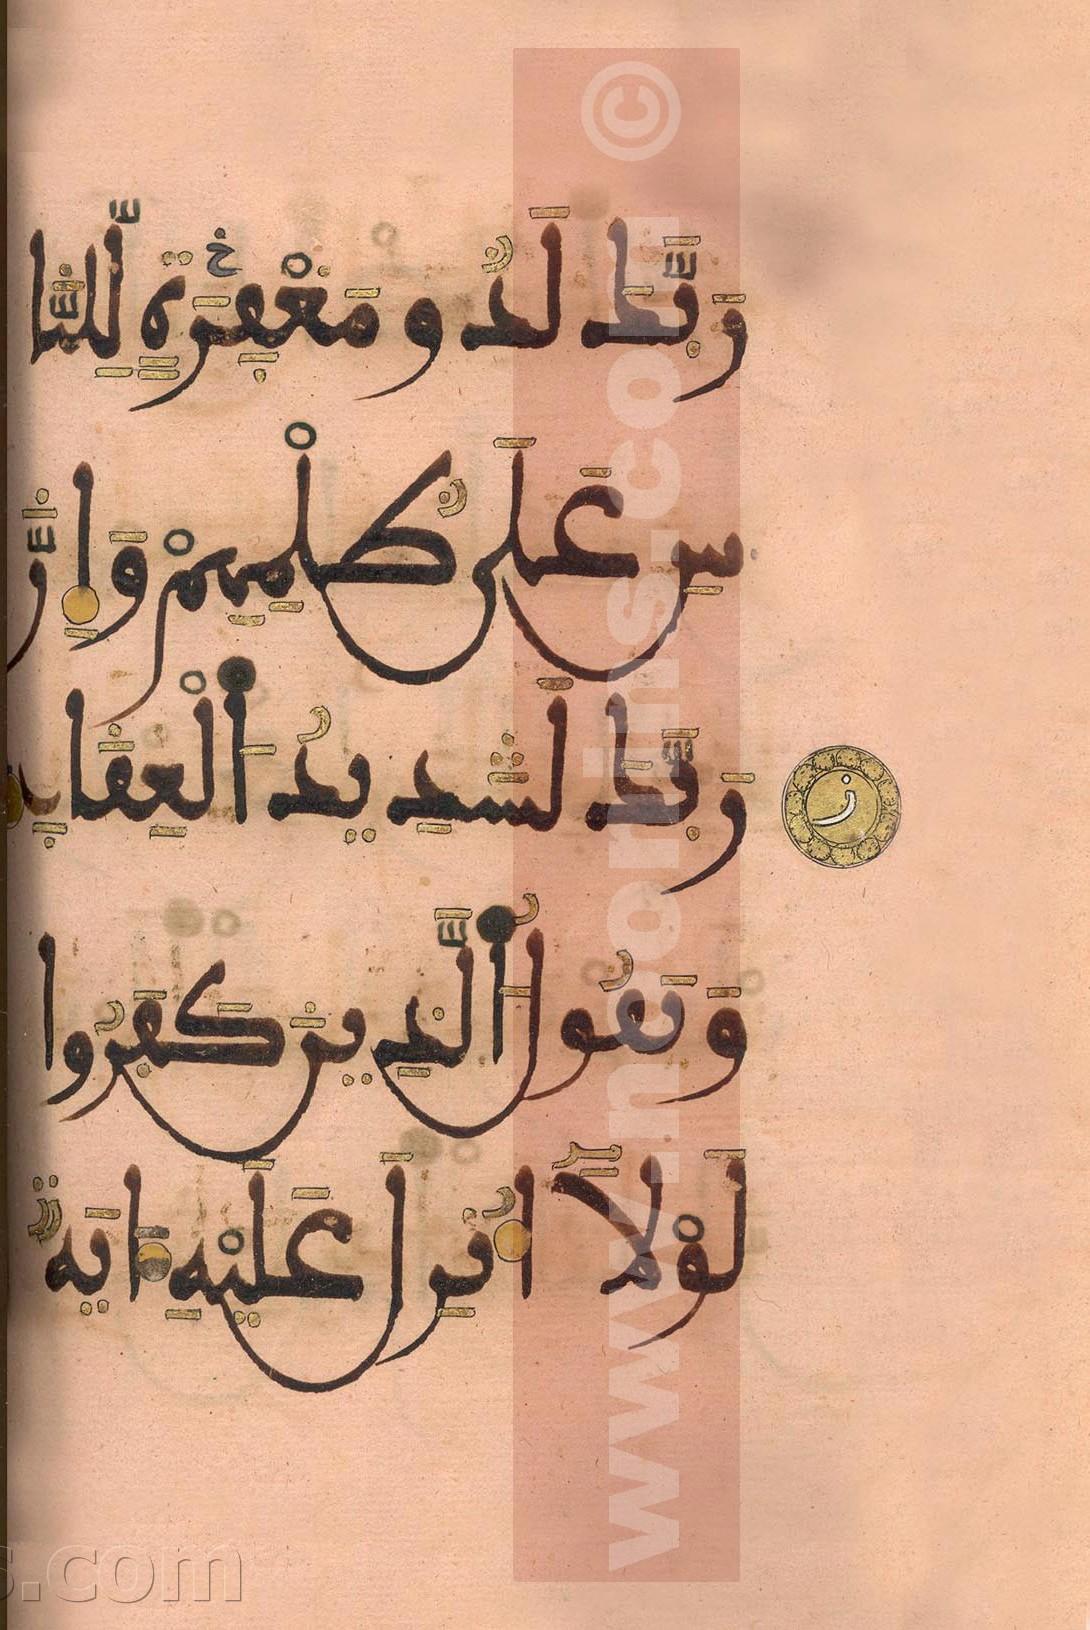 رَبَّكَ لَذُو مَغْفِرَةٍ لِّلنَّا
سِ عَلَىٰ ظُلْمِهِمْ وَإِنَّ
رَبَّكَ لَشَدِيدُ الْعِقَابِ
وَيَقُولُ الَّذِينَ كَفَرُوا
لَوْلَا أُنزِلَ عَلَيْهِ ءَايَةٌ
www.mcorlins.com ©
s.com